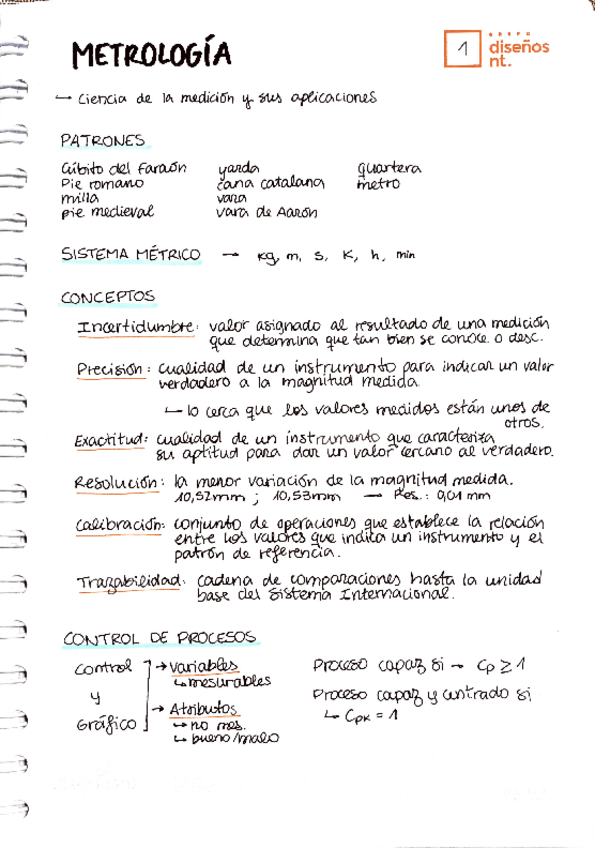 METROLOGÍA
1
GRUPO
diseños
nt.
→ Ciencia de la medición y sus aplicaciones
PATRONES
Cúbito del faraón yarda quartera
Pie romano cana catalana metro
milla vara
pie medieval vara de Aarón
SISTEMA MÉTRICO → kg, m, s, K, h, min
CONCEPTOS
Incertidumbre: valor asignado al resultado de una medición
que determina que tan bien se conoce o desc.
Precisión: cualidad de un instrumento para indicar un valor
verdadero a la magnitud medida.
↳ lo cerca que los valores medidos están unos de
otros.
Exactitud: cualidad de un instrumento que caracteriza
su aptitud para dar un valor cercano al verdadero.
Resolución: la menor variación de la magnitud medida.
10,52mm ; 10,53mm → Res.: 0,01 mm
Calibración: conjunto de operaciones que establece la relación
entre los valores que indica un instrumento y el
patrón de referencia.
Trazabilidad: cadena de comparaciones hasta la unidad
base del Sistema Internacional.
CONTROL DE PROCESOS
Control y Gráfico
→ Variables
↳ mesurables
→ Atributos
↳ no mes.
↳ bueno/malo
Proceso capaz si → Cp ≥ 1
Proceso capaz y centrado si
↳ Cpk = 1